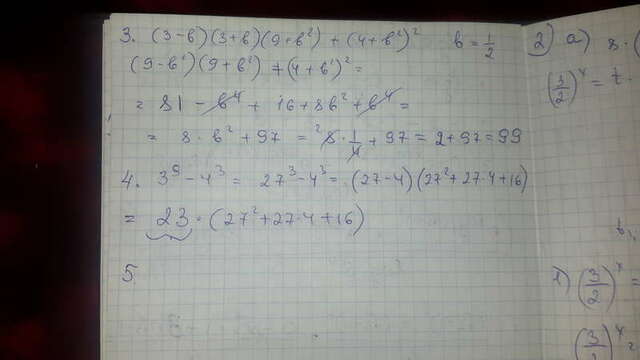 3. (3-в)(3+в)(9+в²) + (4+в²)² в = 1/2
(9-в²)(9+в²) + (4+в²)² =
= 81 - в⁴ + 16 + 8в² + в⁴ =
= 8 · в² + 97 = ²8 · 1/4 + 97 = 2 + 97 = 99
4. 3⁹ - 4³ = 27³ - 4³ = (27-4)(27² + 27·4 + 16)
= 23 · (27² + 27·4 + 16)
5
2) а) 8 · (
(3/2)ˣ = t
1) (3/2)ˣ =